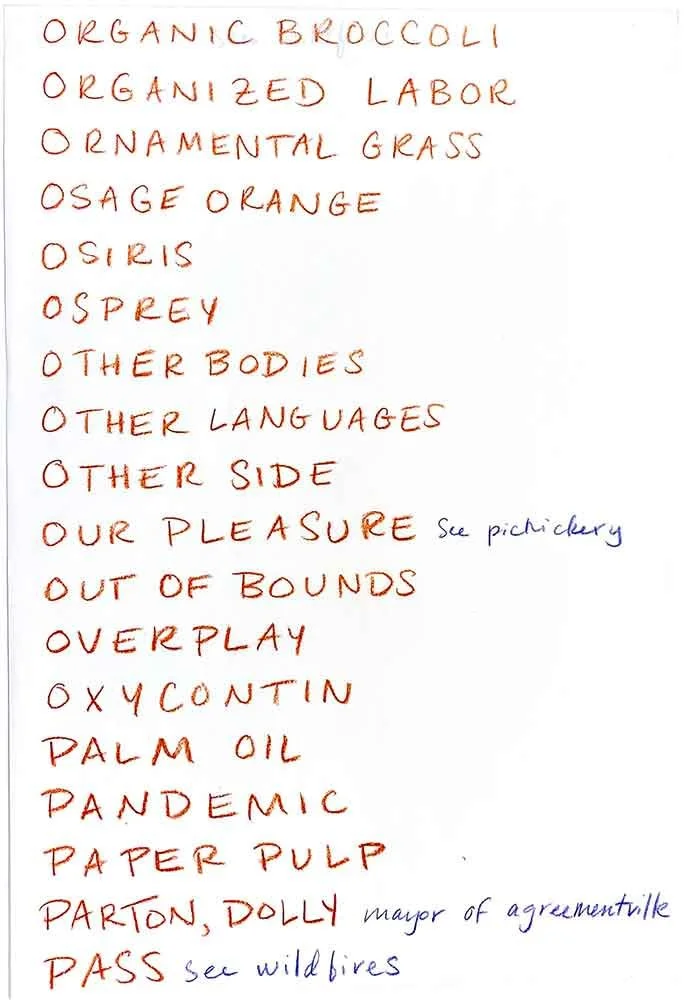 ORGANIC BROCCOLI
ORGANIZED LABOR
ORNAMENTAL GRASS
OSAGE ORANGE
OSIRIS
OSPREY
OTHER BODIES
OTHER LANGUAGES
OTHER SIDE
OUR PLEASURE see pichickery
OUT OF BOUNDS
OVERPLAY
OXYCONTIN
PALM OIL
PANDEMIC
PAPER PULP
PARTON, DOLLY mayor of agreementville
PASS see wildfires